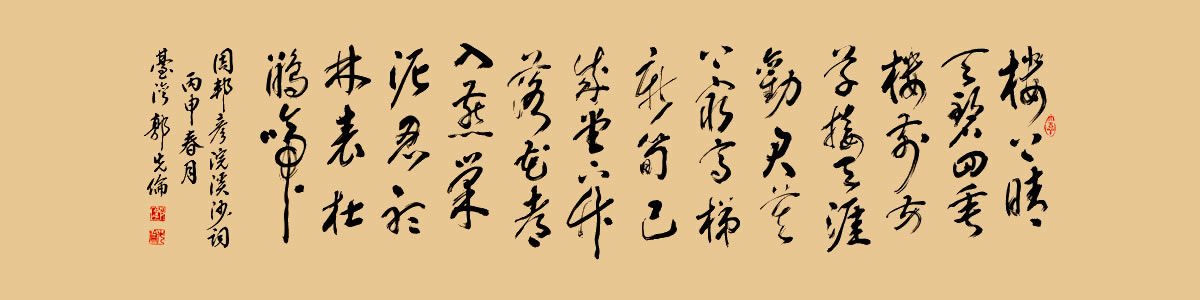 樓上晴
天碧四垂
樓前芳
草接天涯
勸君莫
上最高梯
新筍已
成堂下竹
落花都
入燕巢
泥忍聽
林表杜
鵑啼
周邦彥浣溪沙詞
丙申春月
臺灣郭先倫